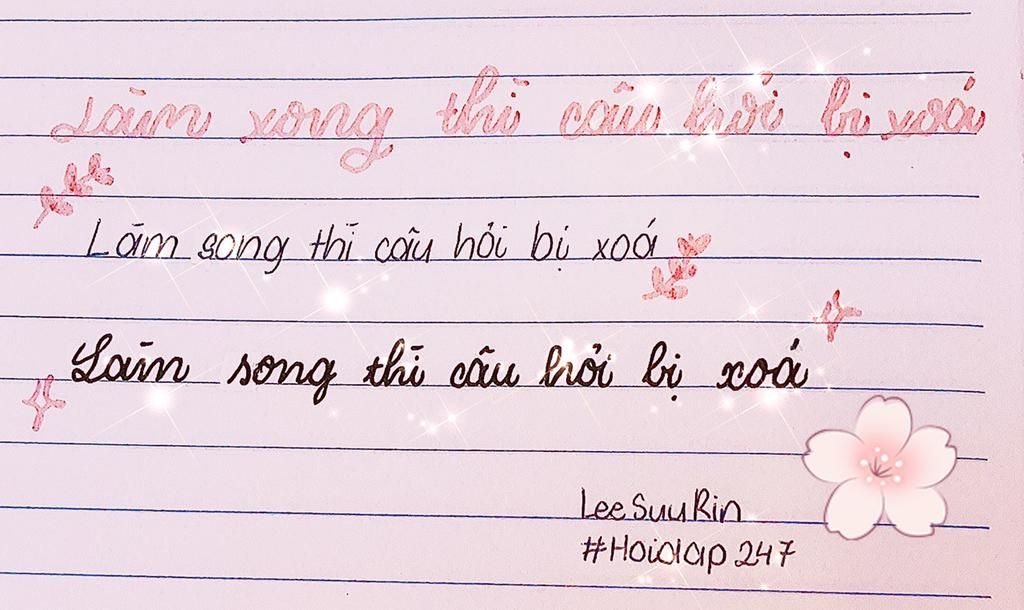 Làm xong thì câu hỏi bị xoá
Làm song thì câu hỏi bị xoá
Làm song thì câu hỏi bị xoá
LeeSuuRin
#Hoidap247